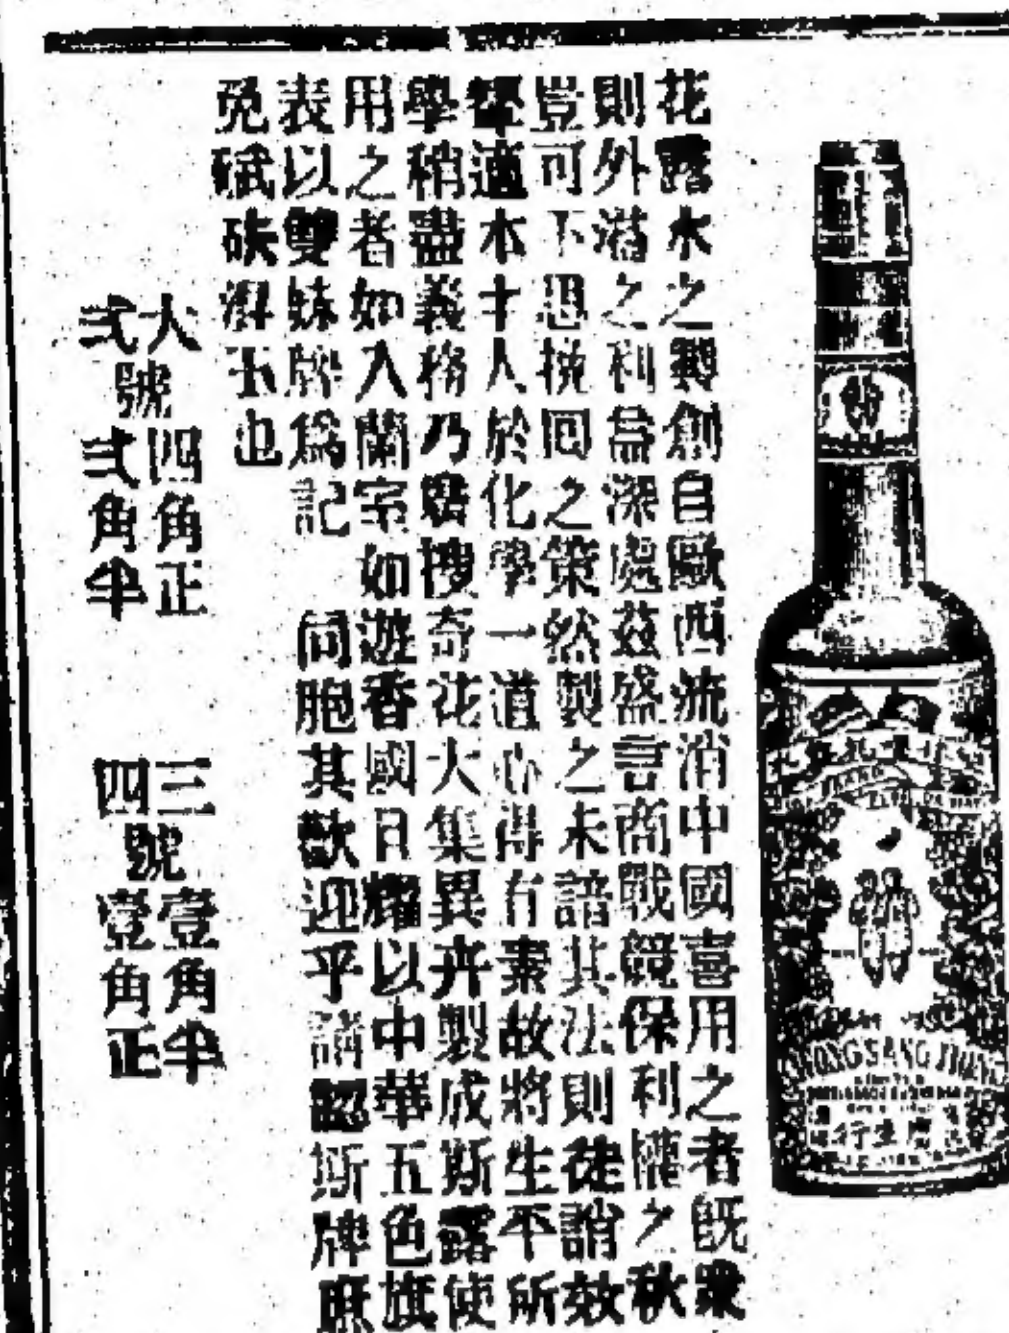 花露水之製創自歐西流消中國喜用之者旣衆
則外溢之利益深處茲盛言商戰競保利權之秋
豈可不思挽回之策然製之未諳其法則徒誚效
顰適本才人於化學一道心得有素故將生平所
學稍盡義務乃廣搜奇花大集異卉製成斯露使
用之者如入蘭室如遊香國日耀以中華五色旗
表以雙妹牌爲記 同胞其歡迎乎請認斯牌庶
免碔砆溷玉也
大號四角正
弍號弍角半
三號壹角半
四號壹角正
KWONG SANG HONG
行生廣